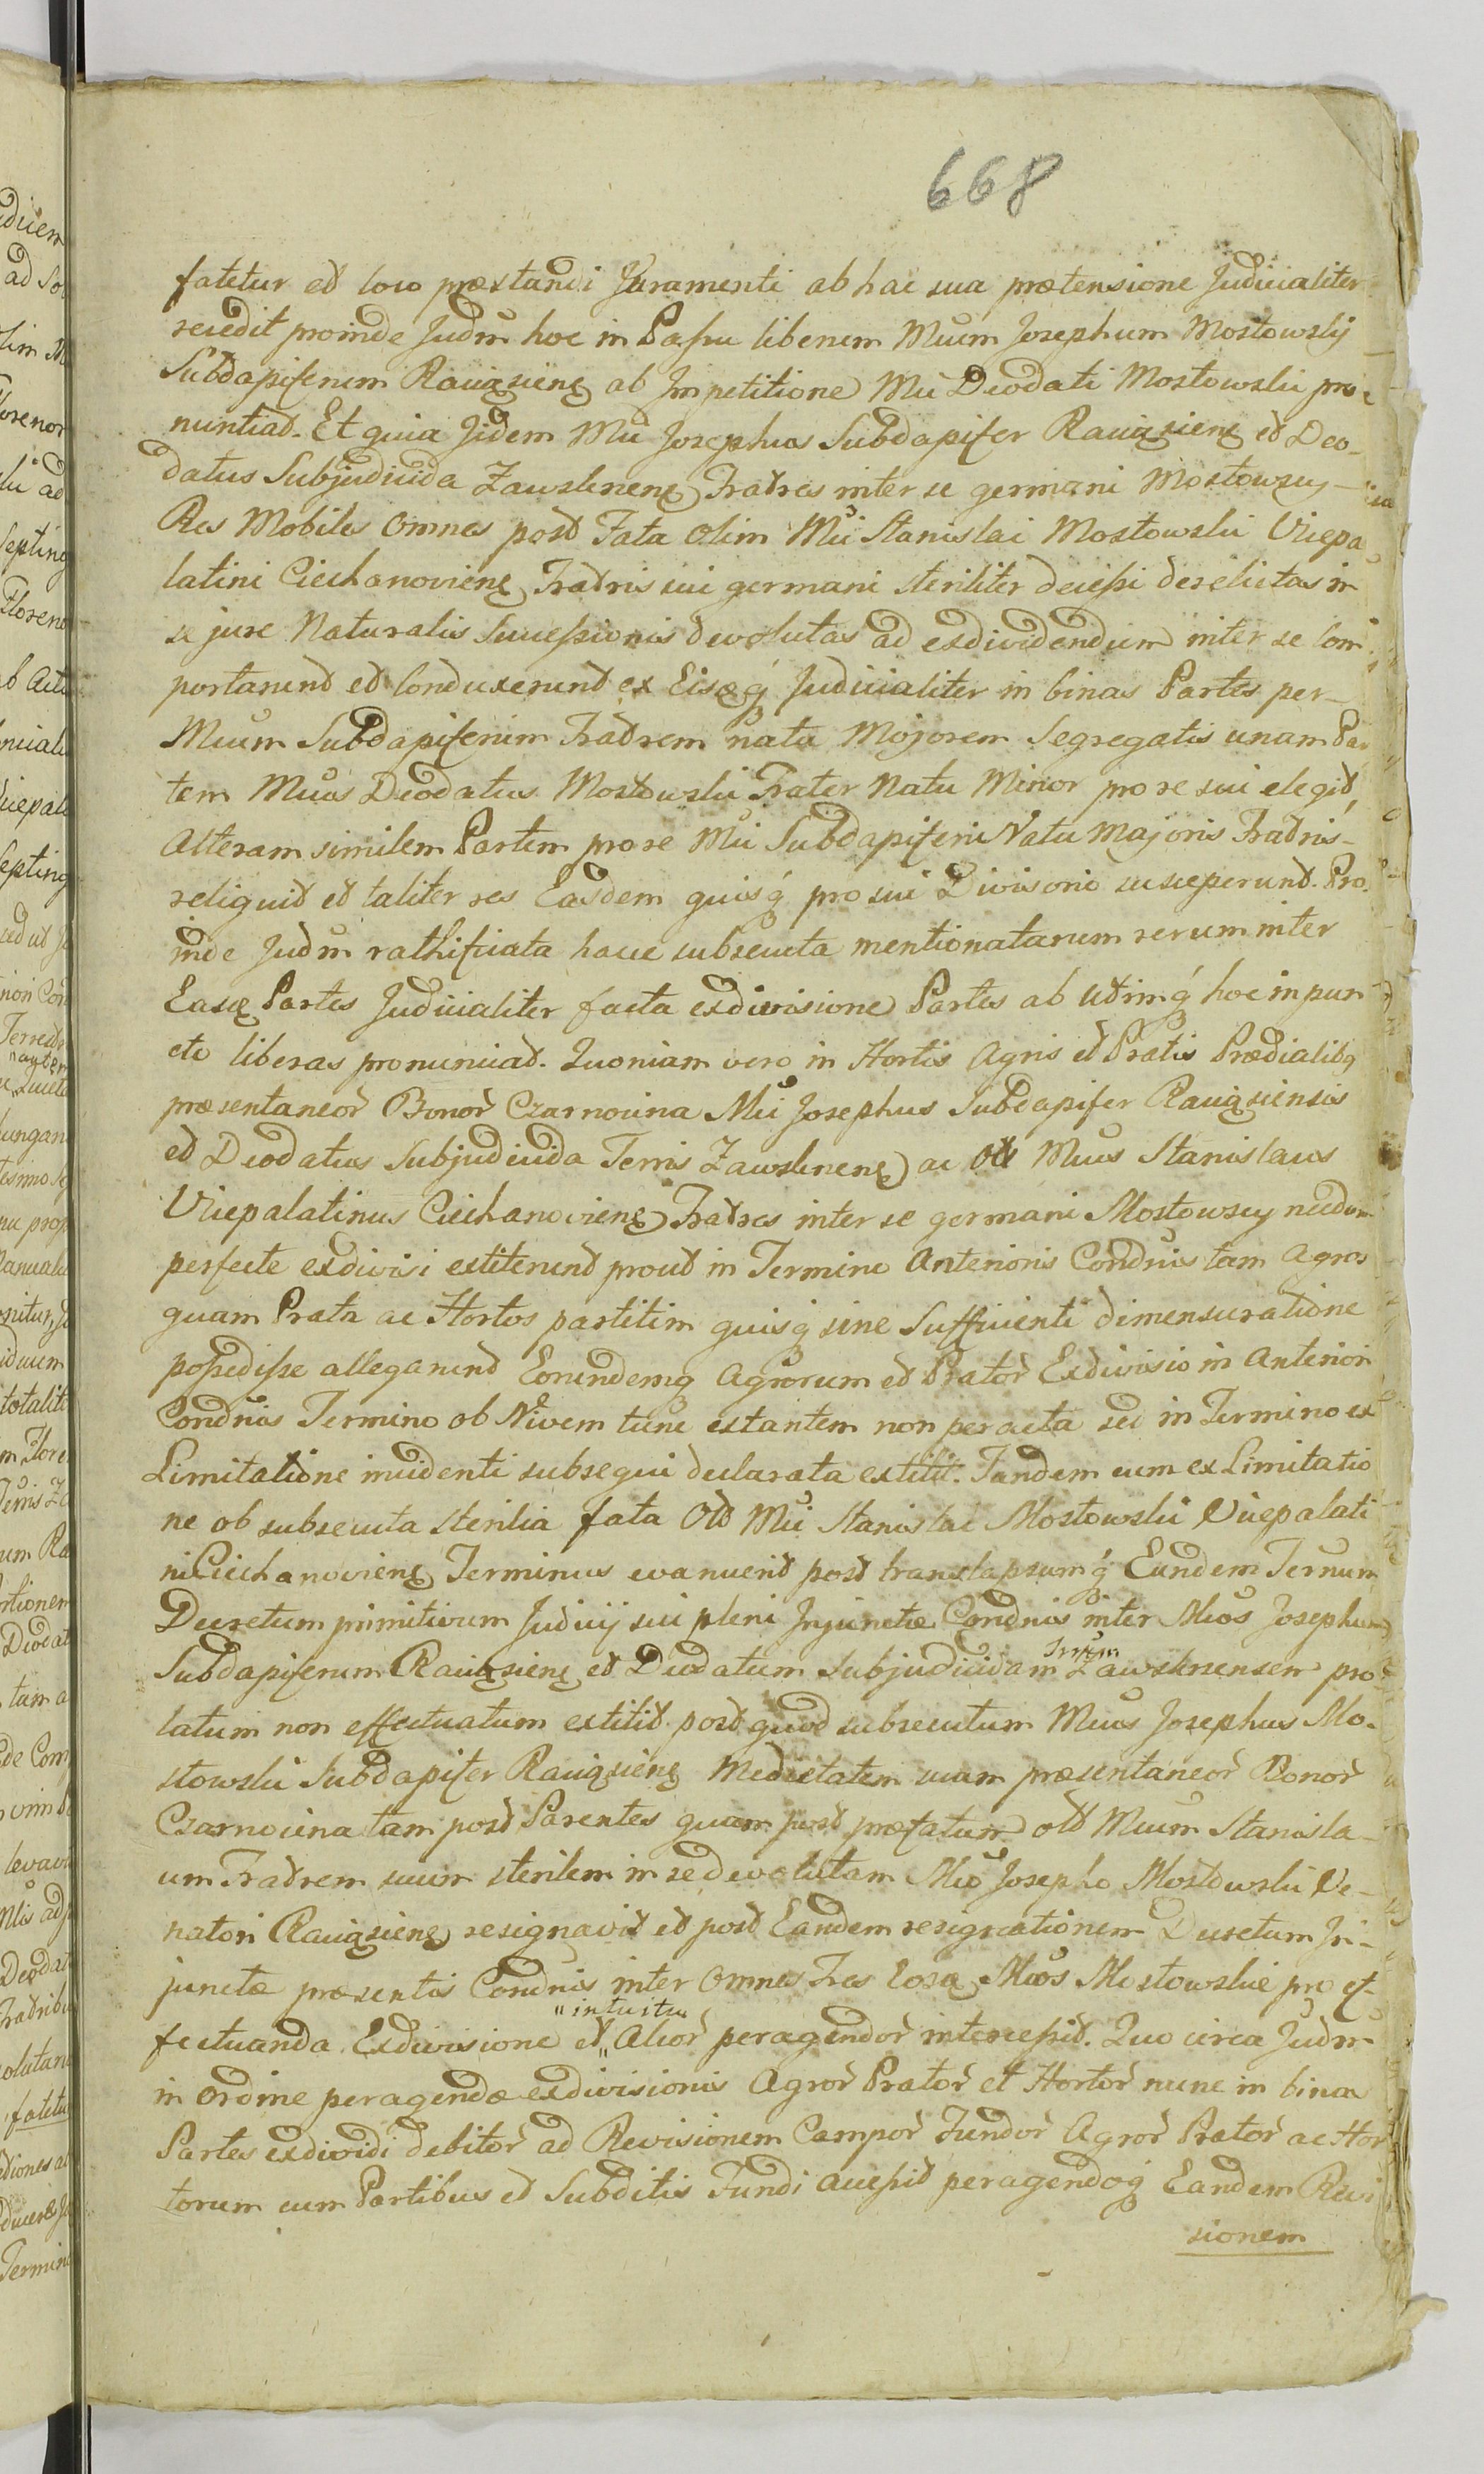 668
fatetur et loco præstandi Juramenti ab hac sua prætensione Judicialiter
recedit proinde Judm̃ hoc in Passu liberum Mũm Josephum Mostowskÿ
Subdapiferum Raviązienę ab Impetitione Mỹi Deodati Mostowski pro
nuntiat. Et quia Jidem Mỹi Josephus Subdapifer Raviązienę et Deo-
datus Subjudicida Zawskrnenę Fratres inter se germani Mostowscy
Res Mobiles omnes post Fata olim Mỹi Stanislai Mostowski Vicepa
latini Ciechanovienę Fratris sui germani steriliter decessi derelictas in
se jure Naturalis Successionis devolutas ad exdividendum inter se com
portarunt et conduxerunt ex Eisq́ Judicialiter in binas Partes per
Mũm Subdapiferum Fratrem natu Majorem Segregatis unam Par
tem Mũus Deodatus Mostowski Frater Natu Minor pro se sui elegit,
Alteram similem Partem pro re Mỹi Subdapiferi Natu Majoris Fratris
reliquit et taliter res Easdem quisq́ pro sui Divisorio susceperunt. Pro
inde Judm̃ rathificata hacce subsecuta mentionatarum rerum inter
Easę Partes Judicialiter facta exdivisione Partes ab utrinq́ hoc in pun
cto liberas pronunciat. Quoniam vero in Hortis Agris et Pratis Prædialibq
præsentaneor̃ Bonor̃ Czarnocina Mỹi Josephus Subdapifer Raviąziensis
et Deodatus Subjudicida Terris Zawskrnenę ac olt Mũus Stanislaus
Vicepalatinus Ciechanovienę Fratres inter se germani Mostowscy necdum
perfecte exdivisi extiterunt prout in Termino Anterioris Condnis tam Agros
quam Prata ac Hortos partitim quisq sine Sufficienti dimensuratione
possedisse allegarunt Eorundemq Agrorum et Prator̃ Exdivisio in Anteriori
Condnis Termino ob Nivem tunc extantem non peracta sed in Termino ex
Limitatione incidenti subsequi declarata extitit. Tandem cum ex Limitatio
ne ob subsecuta sterilia fata Olt Mỹi Stanislai Mostowski Vicepalati
ni Ciechanovienę Terminus evanuerit post translapsumq́ Eundem Ternum
Decretum primitivum Judicij sui pleni Injunctæ Condnis inter Mũos Josephum
Subdapiferum Raviązienę et Deodatum Subjudicidam Terrarum Zawskrnensem pro
latum non effectuatum extitit. post quod subsecutum Mũus Josephus Mo-
stowski Subdapifer Raviązienę Medietatem suam præsentaneor̃ Bonor̃
Czarnocina tam post Parentes quam post præfatum olt Mũum Stanisla
um Fratrem suum sterilem in se devolutam Mũo Josepho Mostowski Ve-
natori Raviązienę resignavit et post Eandem resignationem Decretum In-
junctæ præsentis Condnis inter omnes Tres Eosq Mũos Mostowskie pro ef-
fectuanda Exdivisione et "intuitu" Alior̃ peragendor̃ intercessit. Quo circa Judm̃
in ordine peragendæ exdivisionis Agror̃ Prator̃ et Hortor̃ nunc in binas
Partes exdividi debitor̃ ad Revisionem Campor̃ Fundor̃ Agror̃ Prator̃ ac Hor
torum cum Partibus et Subditis Fundi accessit peragendoq́ Eandem Revi
sionem